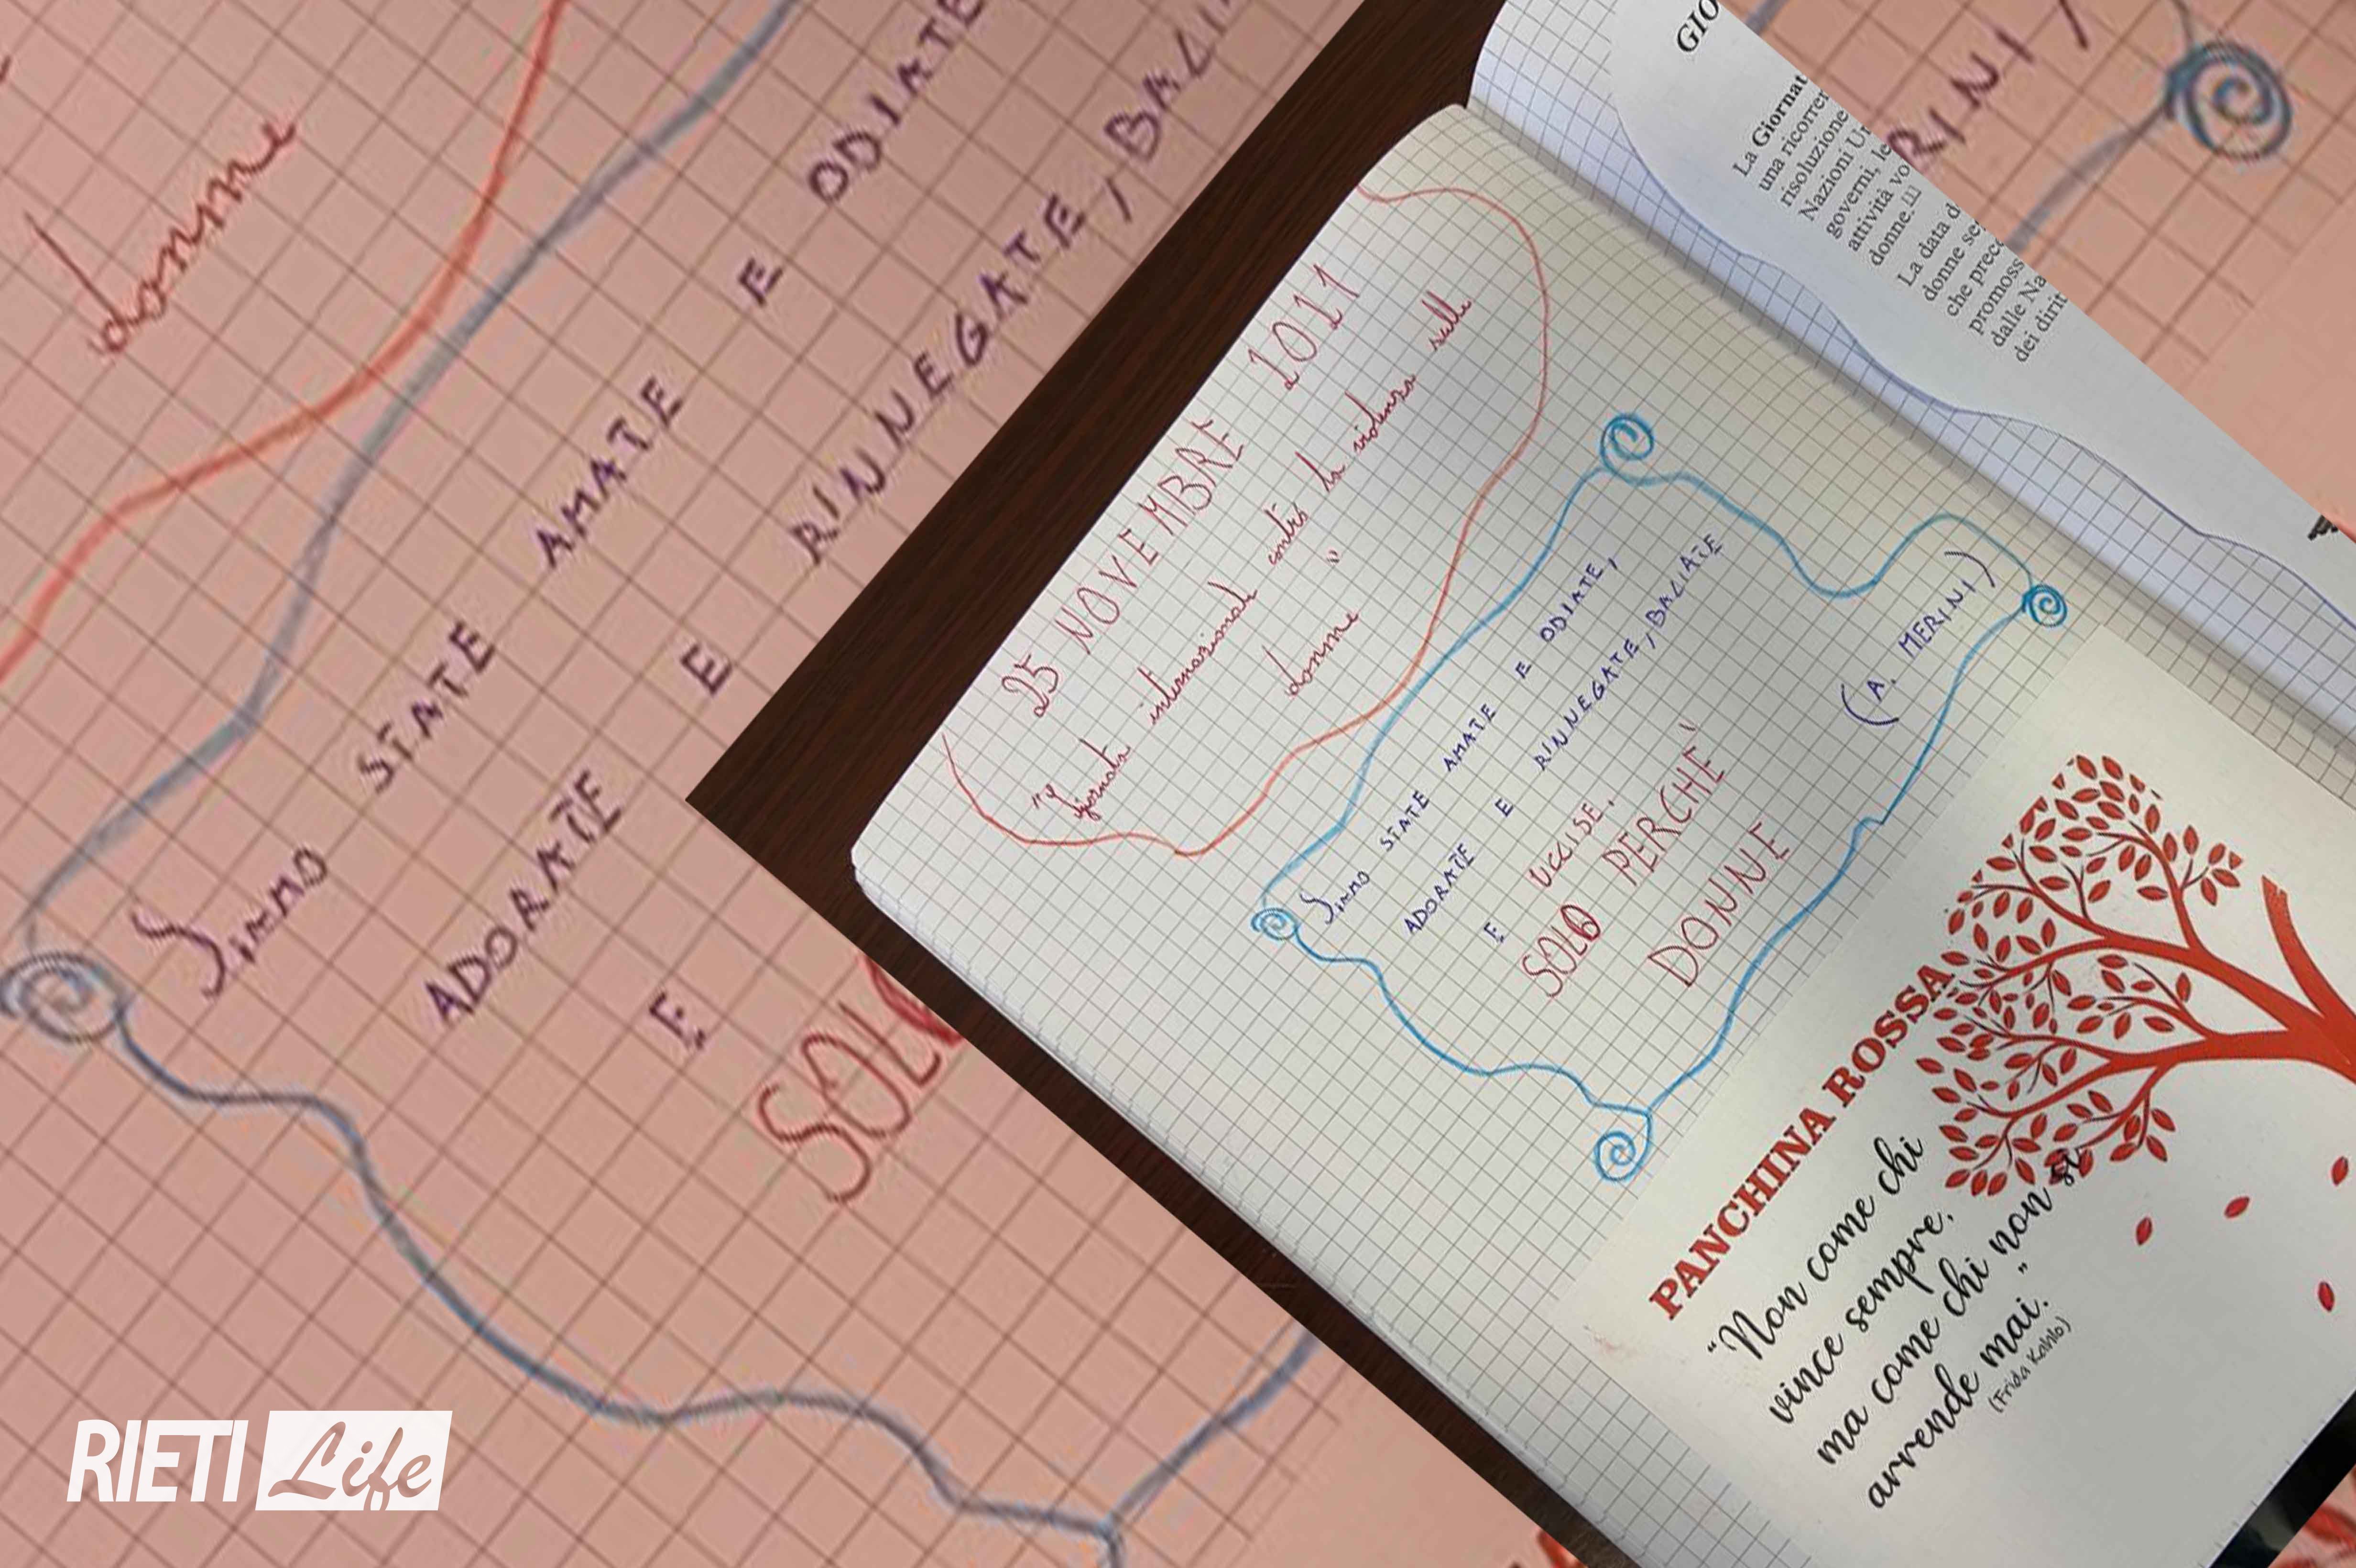 25 NOVEMBRE 2021
"Giornata internazionale contro la violenza sulle
donne"
Siamo STATE AMATE E ODIATE,
ADORATE E RINNEGATE, BACIATE
E UCCISE,
SOLO PERCHÈ
DONNE
(A. MERINI)
PANCHINA ROSSA
"Non come chi
vince sempre,
ma come chi non si
arrende mai."
(Frida Kahlo)
GIO
La Giornat
una ricorrer
risoluzione
Nazioni Ur
governi, le
attività vo
donne.[1]
La data d
donne se
che prec
promoss
dalle Na
dei dirit
donne
Siamo STATE AMATE E ODIATE
ADORATE E RINNEGATE, BACI
E
SOLO
RINI)
RIETI Life